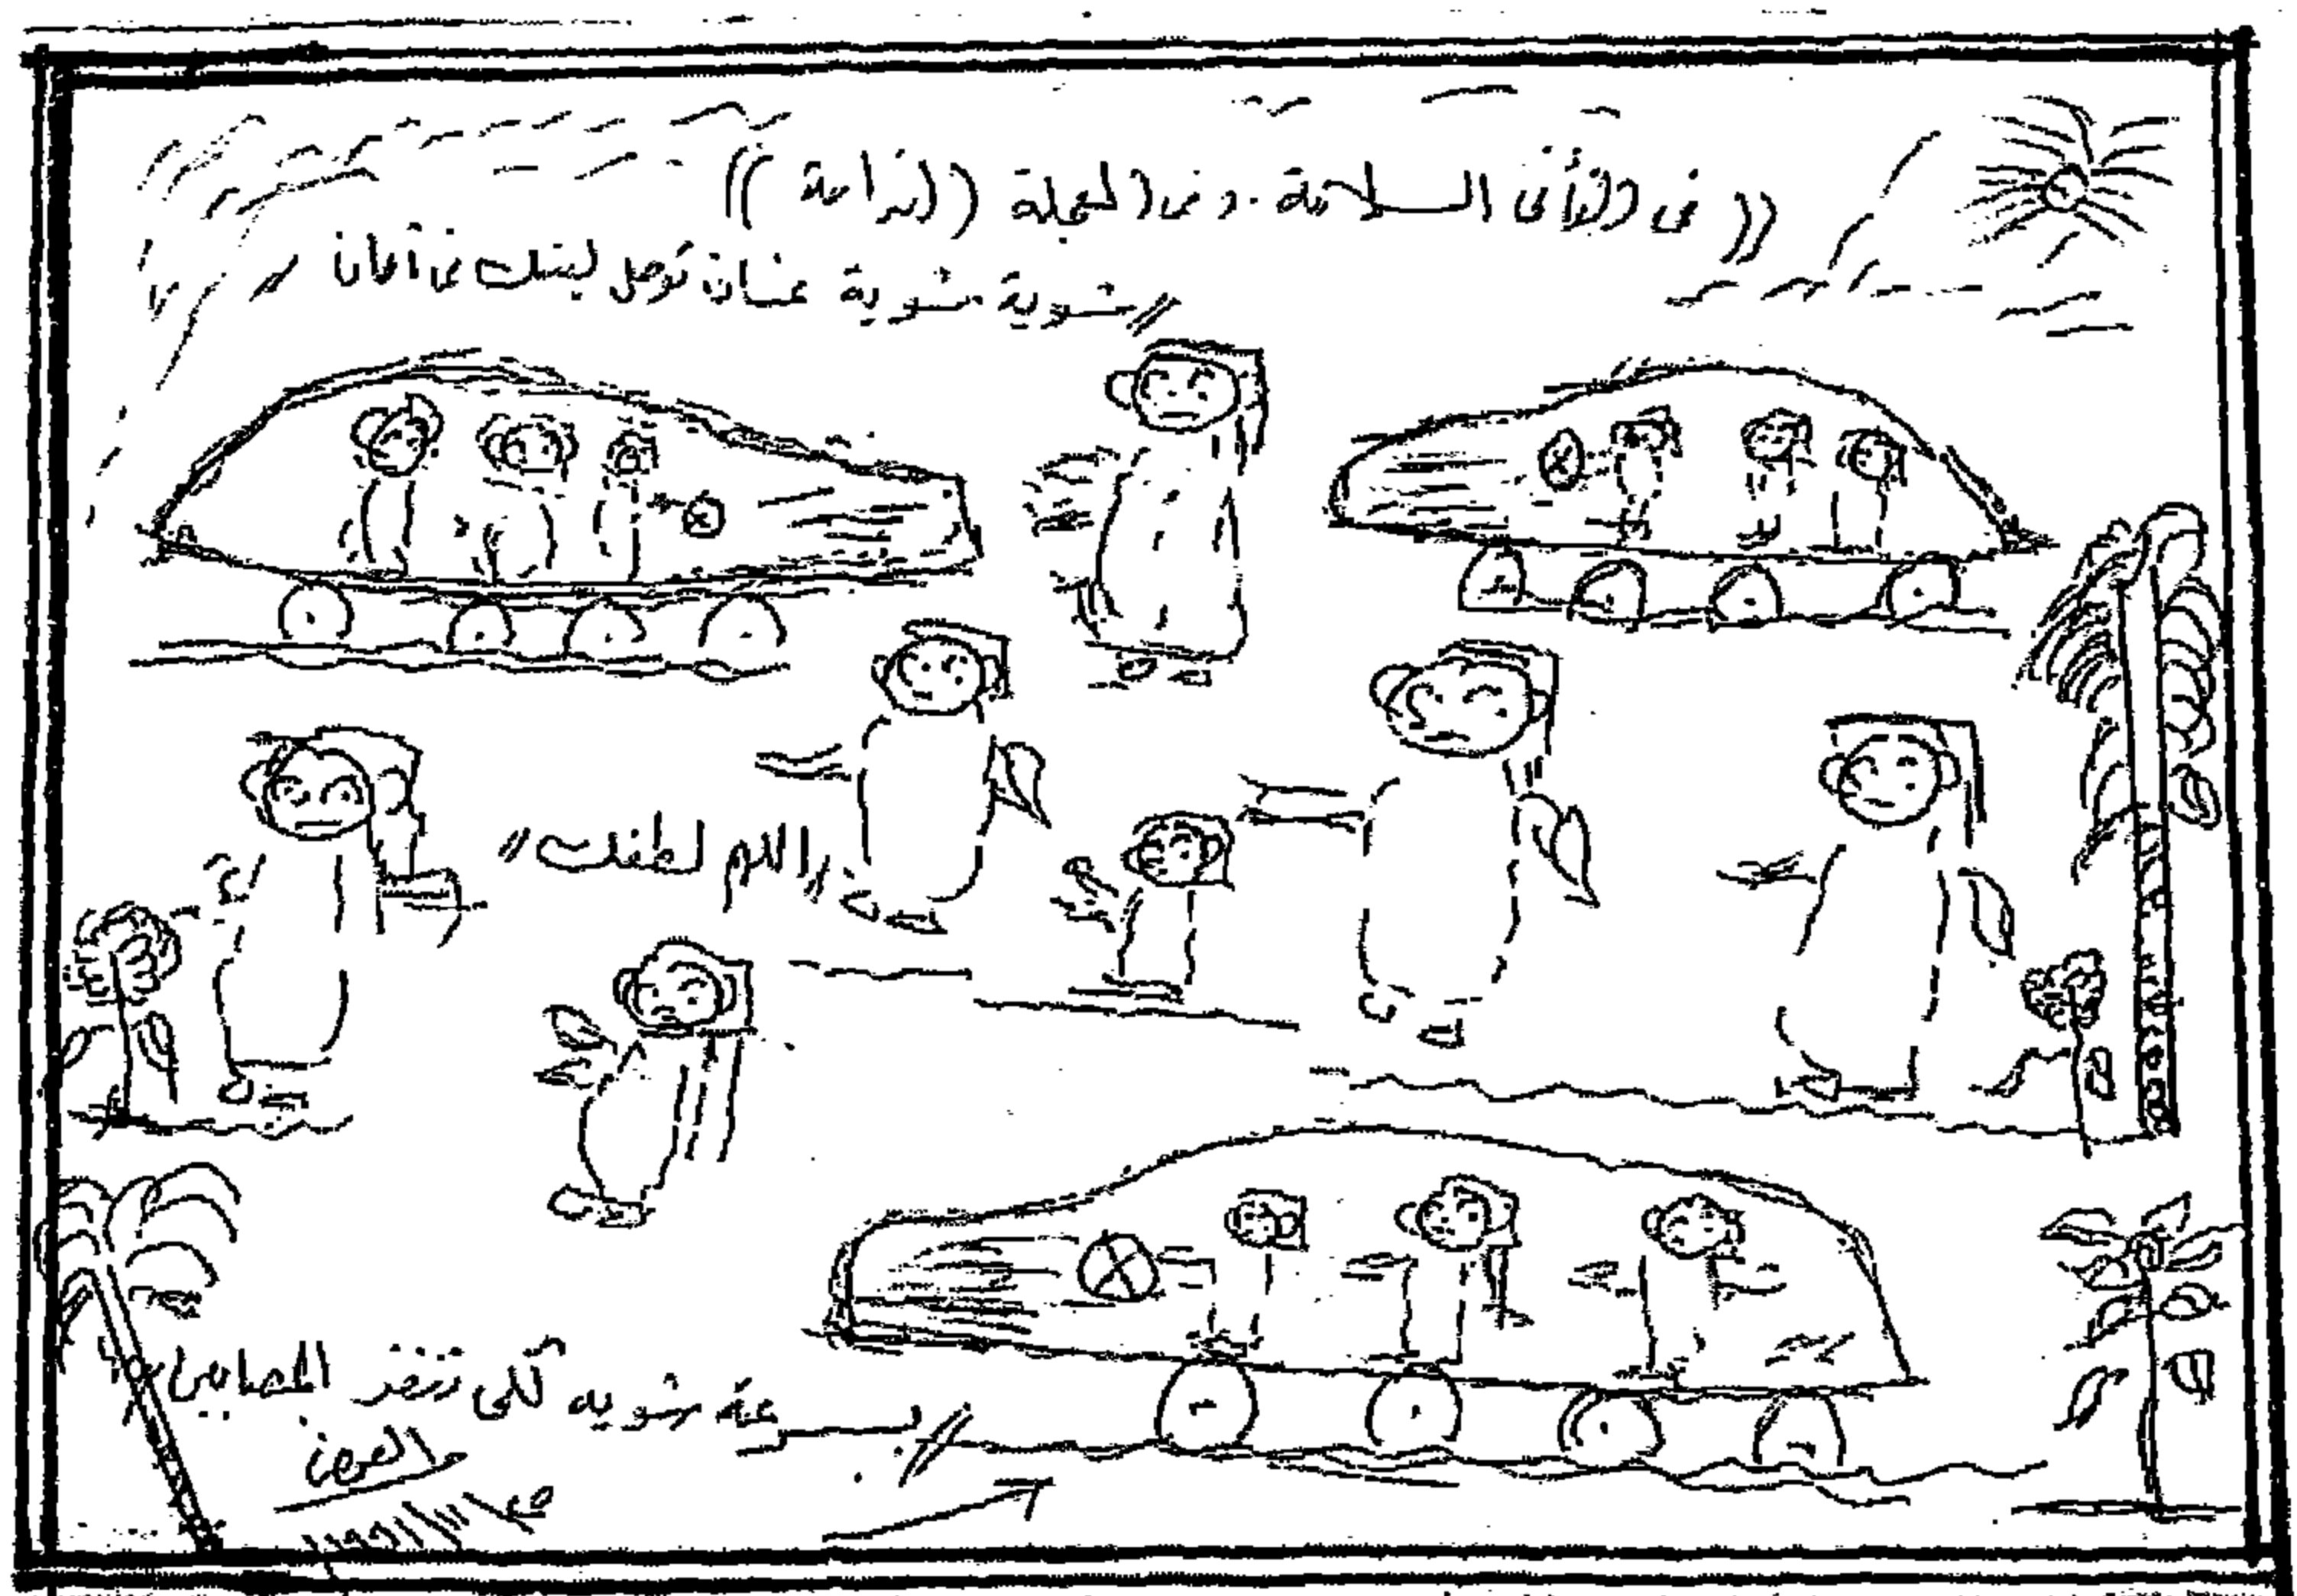 (( فى التأنى السلامة. وفى العجلة (الندامة))
"شوية شوية عشان توصل لبيتك فى أمان"
"اللهم لطفك"
"بسرعة شويه لكى ننقذ المصابين